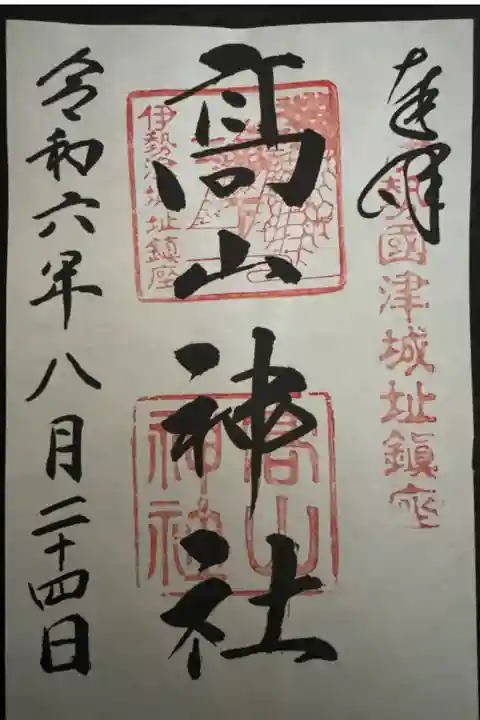 奉拝
伊勢國津城址鎮座
髙山神社
伊勢津城址鎮座
高山神社
令和六年八月二十四日